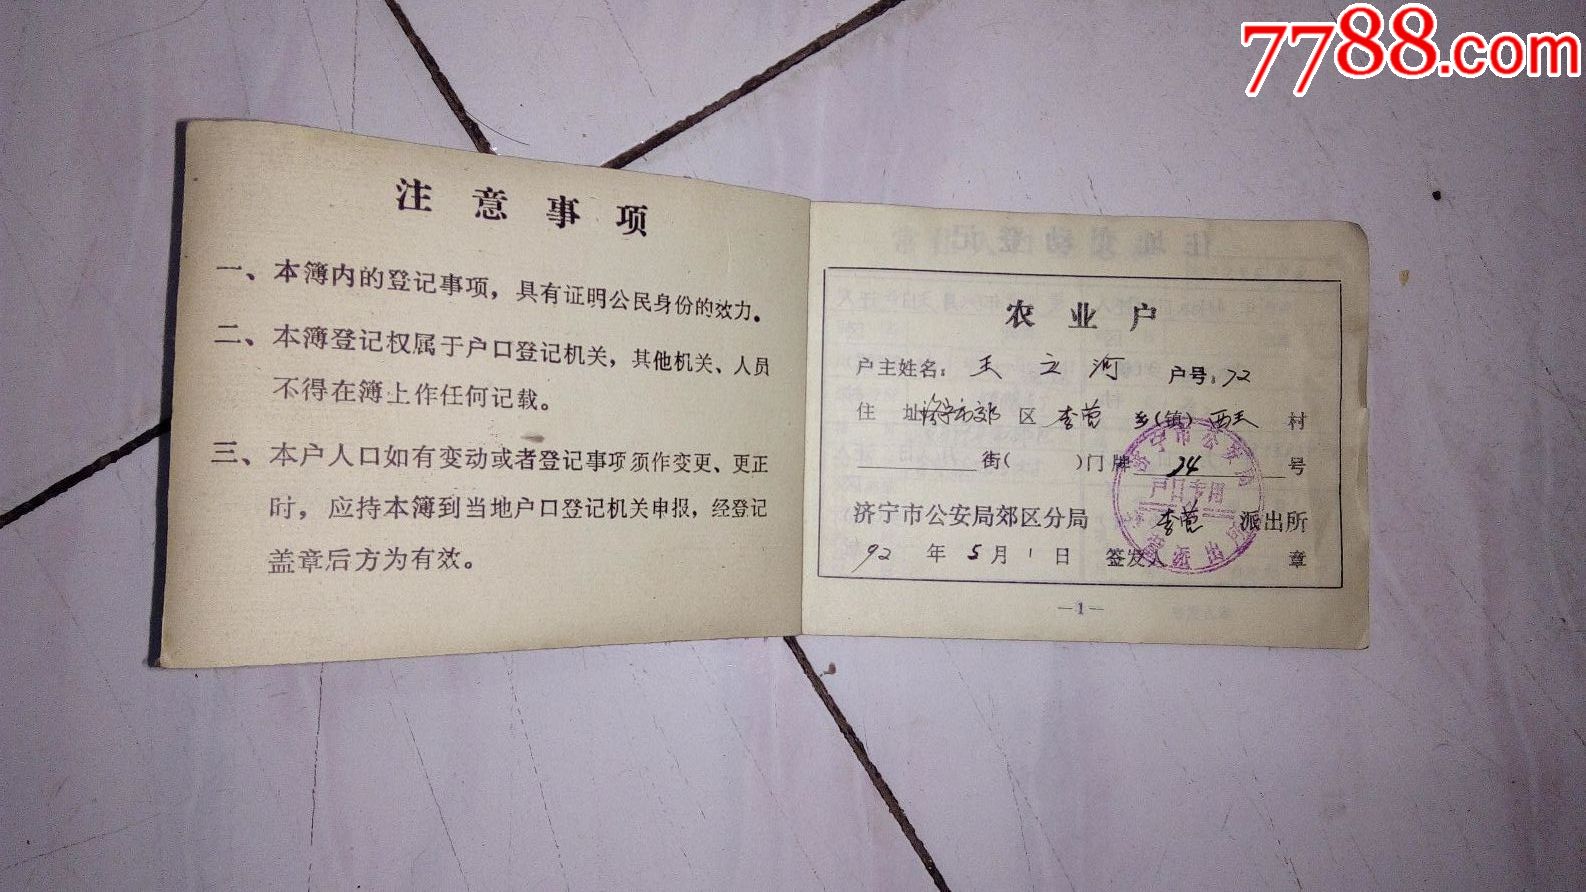 7788.com
注意事项
一、本簿内的登记事项，具有证明公民身份的效力。
二、本簿登记权属于户口登记机关，其他机关、人员
不得在簿上作任何记载。
三、本户人口如有变动或者登记事项须作变更、更正
时，应持本簿到当地户口登记机关申报，经登记
盖章后方为有效。
农业户
户主姓名：王立河 户号：72
住址 济宁市郊区 李营乡（镇）西王村
街（ ）门牌 24 号
济宁市公安局郊区分局 李营 派出所
92年5月1日 签发人 章
济宁市公安局
户口专用
派出所
—1—